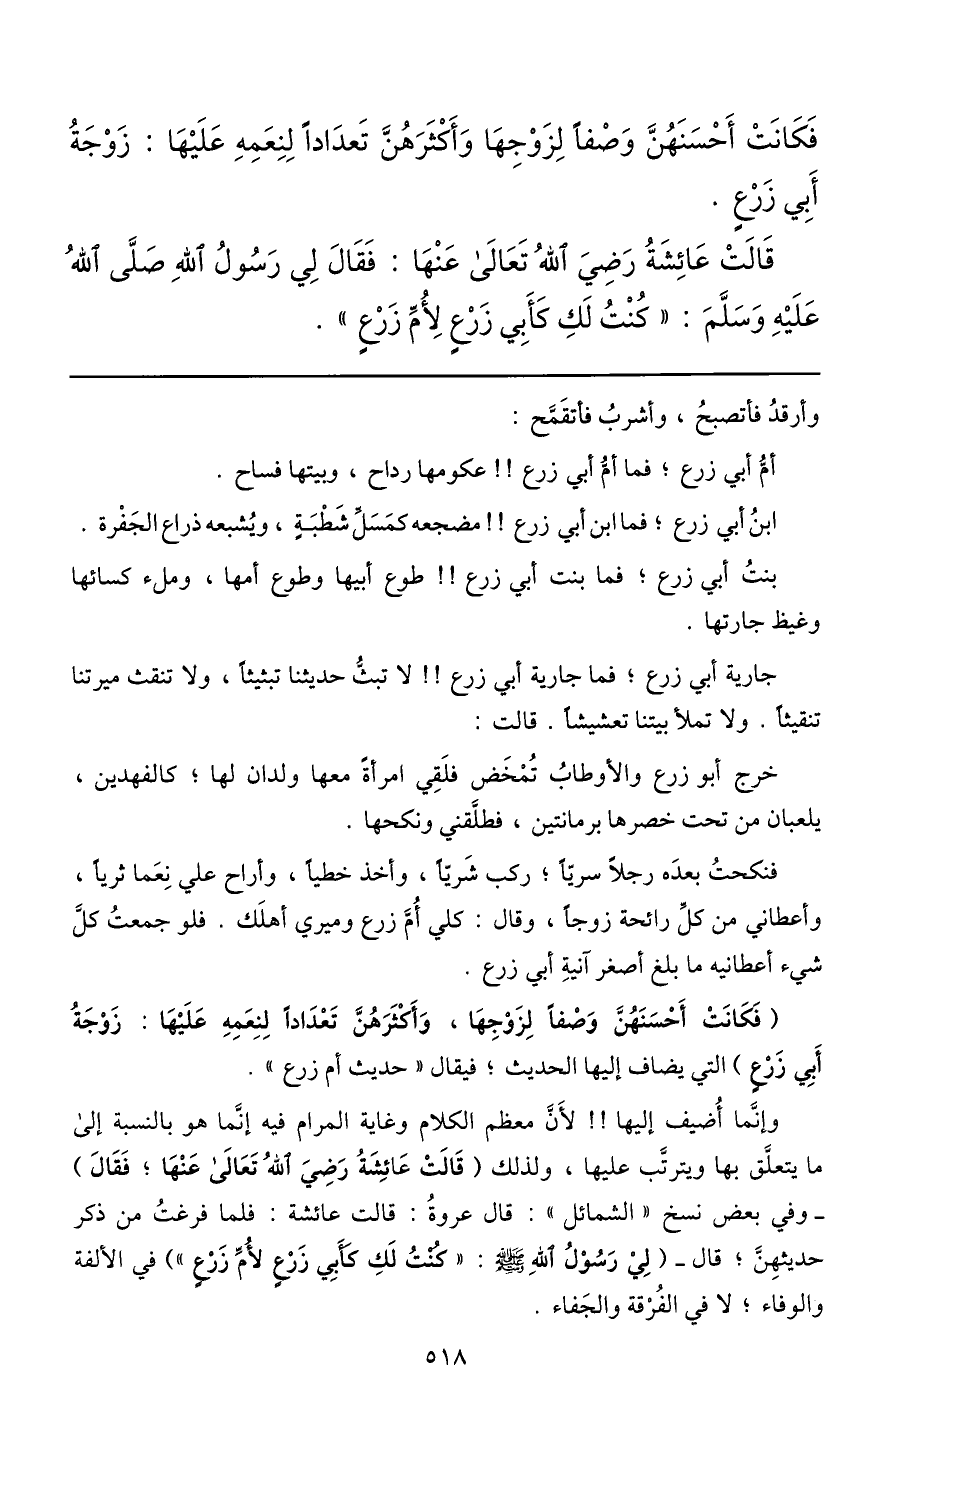 فَكَانَتْ أَحْسَنَهُنَّ وَصْفاً لِزَوْجِهَا وَأَكْثَرَهُنَّ تَعدَاداً لِنِعَمِهِ عَلَيْهَا : زَوْجَةُ
أَبِي زَرْعٍ .
قَالَتْ عَائِشَةُ رَضِيَ ٱللهُ تَعَالَىٰ عَنْهَا : فَقَالَ لِي رَسُولُ ٱللهِ صَلَّى ٱللهُ
عَلَيْهِ وَسَلَّمَ : « كُنْتُ لَكِ كَأَبِي زَرْعٍ لِأُمِّ زَرْعٍ » .
وأرقدُ فأتصبحُ ، وأشربُ فأتقَمَّح :
أمُّ أبي زرع ؛ فما أمُّ أبي زرع !! عكومها رداح ، وبيتها فساح .
ابنُ أبي زرع ؛ فما ابن أبي زرع !! مضجعه كمَسَلِّ شَطْبَةٍ ، ويُشبعه ذراع الجَفْرة .
بنتُ أبي زرع ؛ فما بنت أبي زرع !! طوع أبيها وطوع أمها ، وملء كسائها
وغيظ جارتها .
جارية أبي زرع ؛ فما جارية أبي زرع !! لا تبثُّ حديثنا تبثيثاً ، ولا تنقث ميرتنا
تنقيثاً . ولا تملأ بيتنا تعشيشاً . قالت :
خرج أبو زرع والأوطابُ تُمْخَض فلَقِي امرأةً معها ولدان لها ؛ كالفهدين ،
يلعبان من تحت خصرها برمانتين ، فطلَّقني ونكحها .
فنكحتُ بعدَه رجلاً سريّاً ؛ ركب شَريّاً ، وأخذ خطياً ، وأراح علي نِعَما ثرياً ،
وأعطاني من كلِّ رائحة زوجاً ، وقال : كلي أُمَّ زرع وميري أهلَك . فلو جمعتُ كلَّ
شيء أعطانيه ما بلغ أصغر آنيةِ أبي زرع .
( فَكَانَتْ أَحْسَنَهُنَّ وَصْفاً لِزَوْجِهَا ، وَأَكْثَرَهُنَّ تَعْدَاداً لِنِعَمِهِ عَلَيْهَا : زَوْجَةُ
أَبِي زَرْعٍ ) التي يضاف إليها الحديث ؛ فيقال « حديث أم زرع » .
وإنَّما أُضيف إليها !! لأنَّ معظم الكلام وغاية المرام فيه إنَّما هو بالنسبة إلىٰ
ما يتعلَّق بها ويترتَّب عليها ، ولذلك ( قَالَتْ عَائِشَةُ رَضِيَ ٱللهُ تَعَالَىٰ عَنْهَا ؛ فَقَالَ )
ـ وفي بعض نسخ « الشمائل » : قال عروةُ : قالت عائشة : فلما فرغتُ من ذكر
حديثهِنَّ ؛ قال ـ ( لِيْ رَسُوْلُ ٱللهِ ﷺ : « كُنْتُ لَكِ كَأَبِي زَرْعٍ لأُمِّ زَرْعٍ ») في الألفة
والوفاء ؛ لا في الفُرْقة والجَفاء .
٥١٨